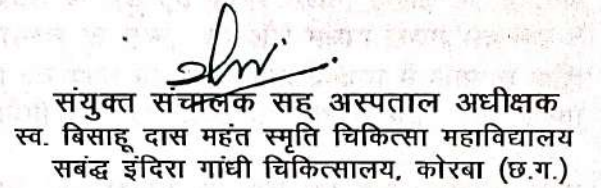 संयुक्त संचालक सह् अस्पताल अधीक्षक
स्व. बिसाहू दास महंत स्मृति चिकित्सा महाविद्यालय
सबंद्ध इंदिरा गांधी चिकित्सालय, कोरबा (छ.ग.)